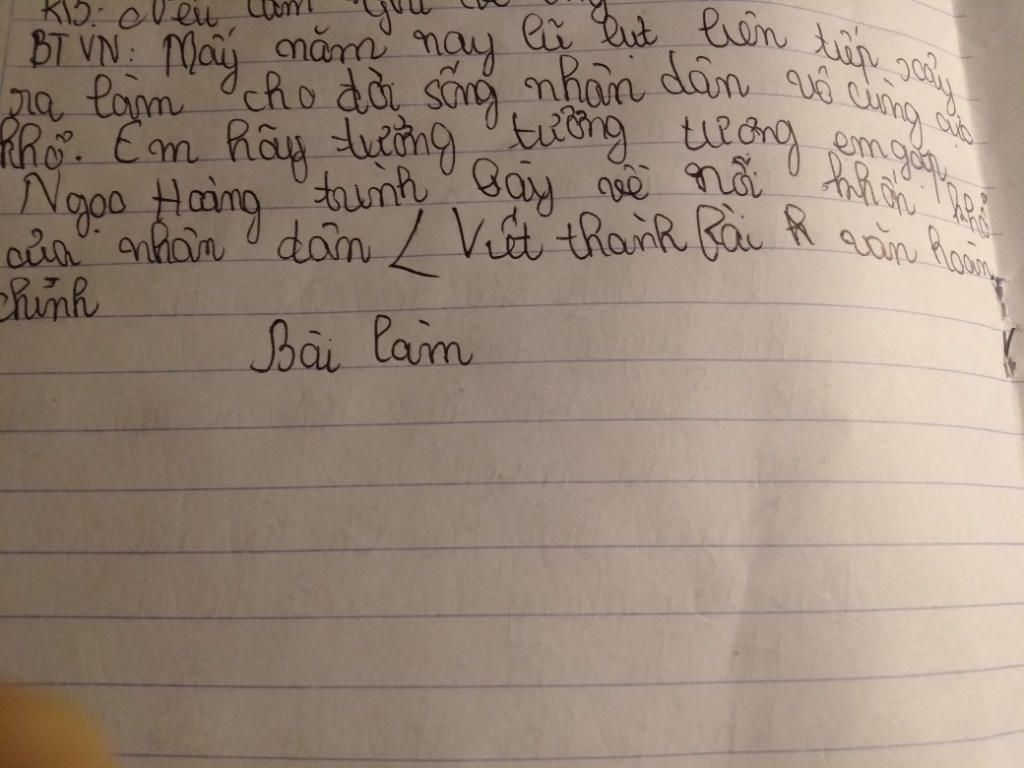 BTVN: Mấy năm nay lũ lụt liên tiếp xảy
ra làm cho đời sống nhân dân vô cùng cực
khổ. Em hãy tưởng tưởng tương em gặp
Ngọc Hoàng trình bày về nỗi khốn khổ
của nhân dân ( Viết thành bài văn hoàn
chỉnh
Bài làm